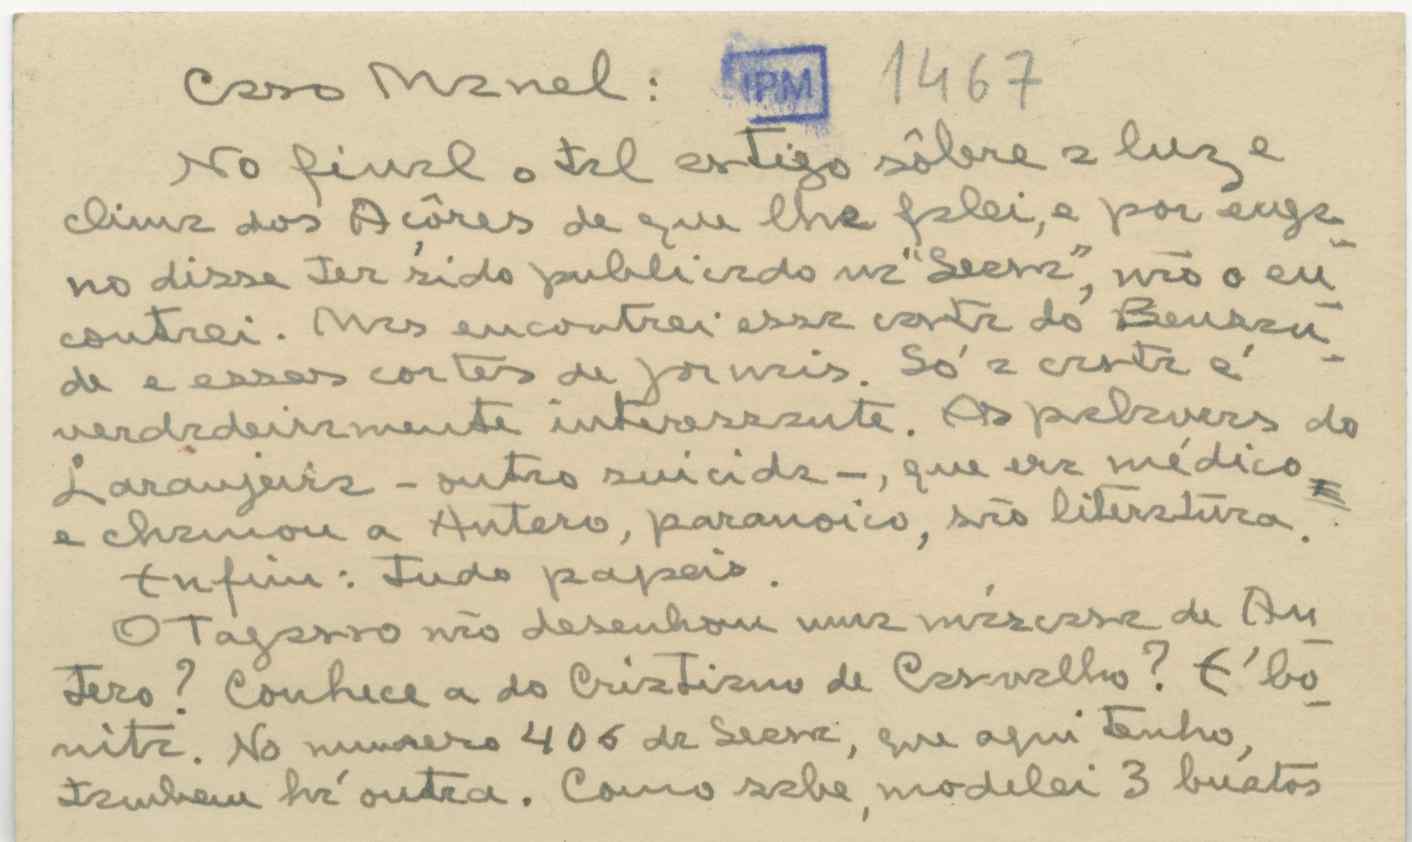 Caro Manel: IPM 1467
No final o tal artigo sôbre a luz e
clima dos Açôres de que lhe falei, e por enga-
no disse ter sido publicado na "Seara", não o en-
contrei. Mas encontrei essa carta do Bensau-
de e esses cortes de jornais. Só a carta é
verdadeiramente interessante. As palavras do
Laranjeira - outro suicida -, que era médico
e chamou a Antero, paranoico, são literatura.
Enfim: tudo papeis.
O Tagarro não desenhou uma máscara de An-
tero? Conhece a do Cristiano de Carvalho? E' bo-
nita. No numero 406 da Seara, que aqui tenho,
tambem há outra. Como sabe, modelei 3 bustos